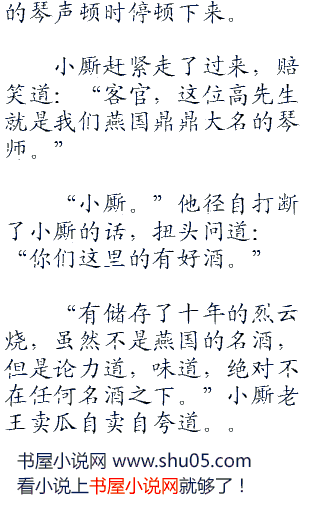 的琴声顿时停顿下来。
小厮赶紧走了过来，赔
笑道：“客官，这位高先生
就是我们燕国鼎鼎大名的琴
师。”
“小厮。”他径自打断
了小厮的话，扭头问道：
“你们这里的有好酒。”
“有储存了十年的烈云
烧，虽然不是燕国的名酒，
但是论力道，味道，绝对不
在任何名酒之下。”小厮老
王卖瓜自卖自夸道。。
书屋小说网 www.shu05.com
看小说上书屋小说网就够了！